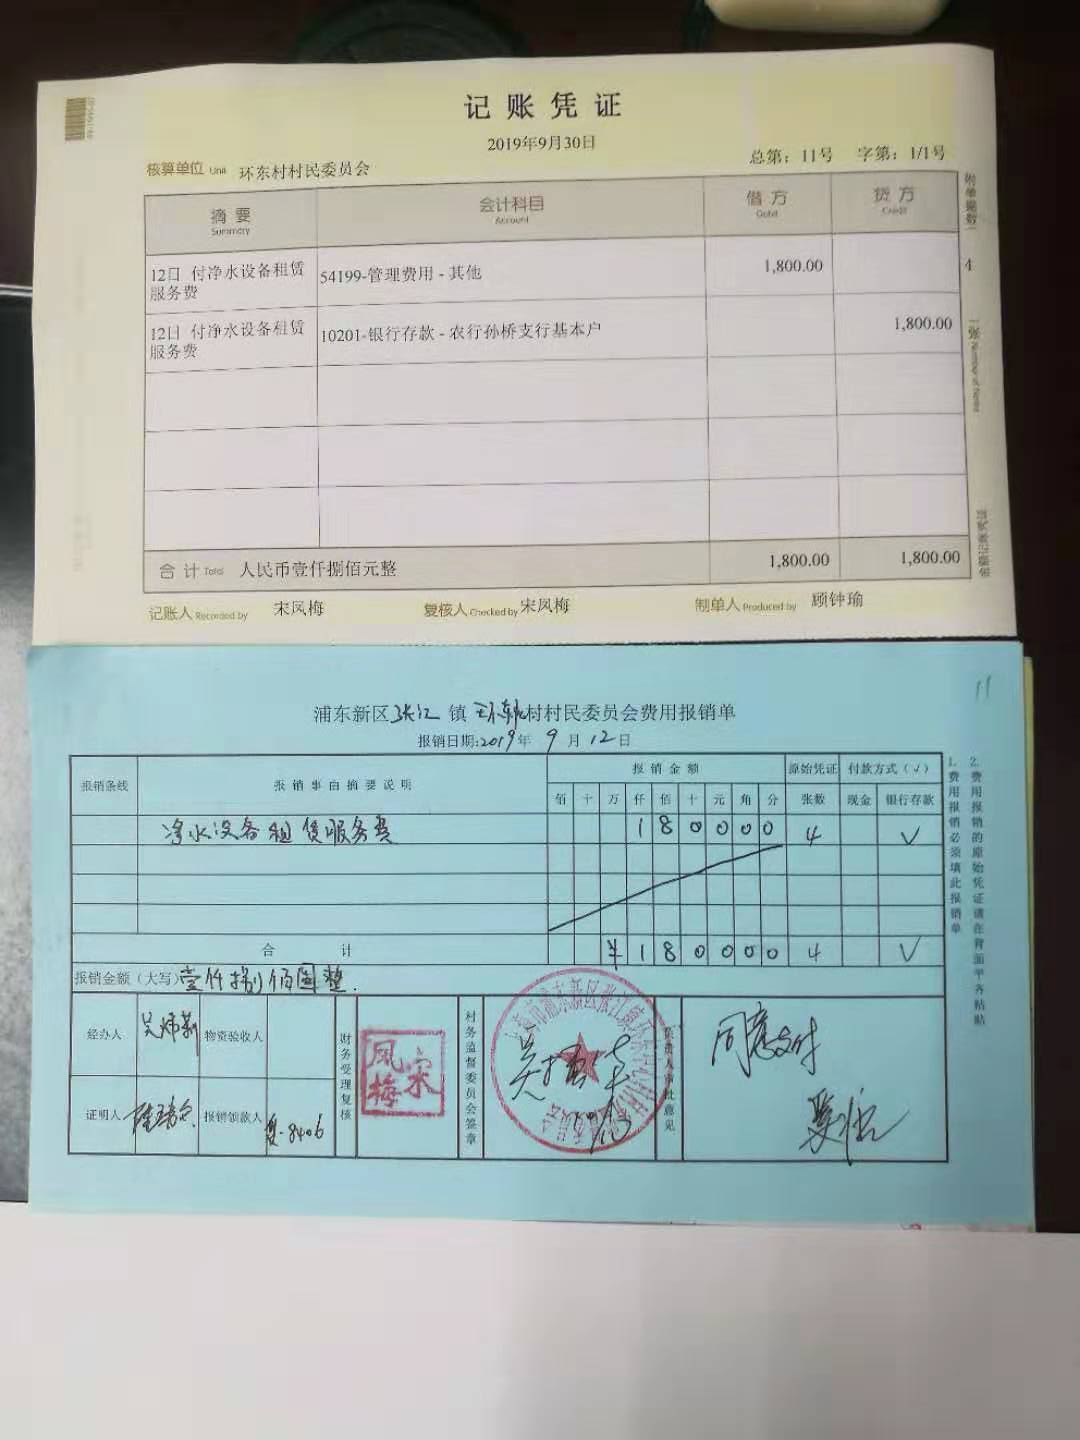 记账凭证
2019年9月30日
核算单位 Unit 环东村村民委员会 总第：11号 字第：1/1号
摘要 会计科目 借方 贷方
Summary Account Debit Credit
附单据数 4 张
12日 付净水设备租赁 54199-管理费用 - 其他 1,800.00
服务费
12日 付净水设备租赁 10201-银行存款 - 农行孙桥支行基本户 1,800.00
服务费
合计 Total 人民币壹仟捌佰元整 1,800.00 1,800.00
金额记账凭证
记账人 Recorded by 宋凤梅 复核人 Checked by 宋凤梅 制单人 Produced by 顾钟瑜
11
浦东新区张江镇环东村村民委员会费用报销单
报销日期:2019年9月12日
报销条线 报销事由摘要说明 报销金额 原始凭证 付款方式（√）
佰 十 万 仟 佰 十 元 角 分 张数 现金 银行存款
净水设备租赁服务费 1 8 0 0 0 0 4 √
合计 ¥ 1 8 0 0 0 0 4 √
报销金额（大写）壹仟捌佰圆整
1.费用报销必须填此报销单
2.费用报销的原始凭证请在背面平齐粘贴
经办人 物资验收人 财务受理复核 宋凤梅 村务监督委员会签章 负责人审批意见 同意支付
证明人 报销领款人